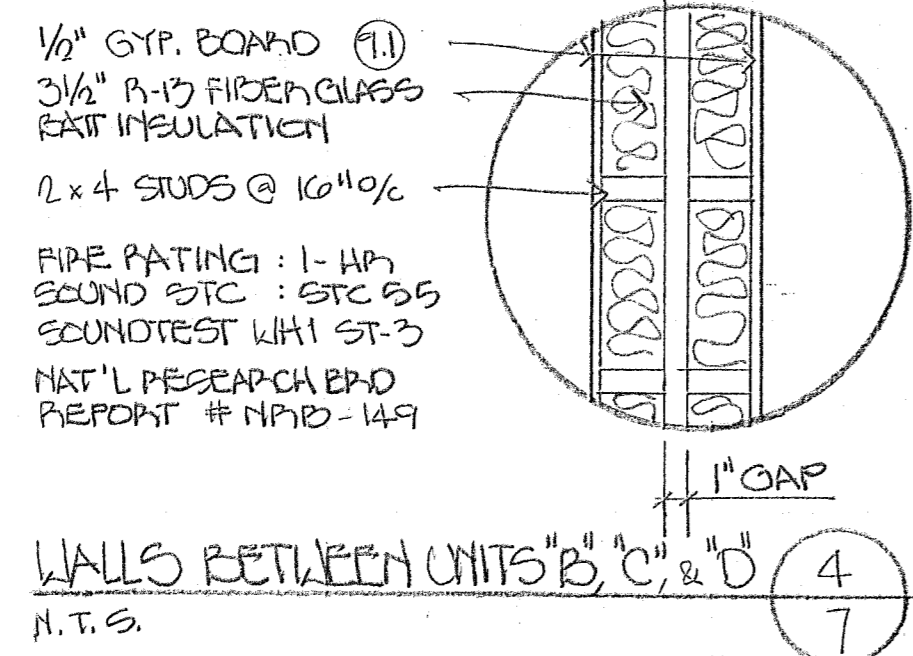 1/2" GYP. BOARD 9.1
3 1/2" R-13 FIBERGLASS
BATT INSULATION
2 x 4 STUDS @ 16" O/C
FIRE RATING : 1-HR
SOUND STC : STC 55
SOUNDTEST WHI ST-3
NAT'L RESEARCH BRD
REPORT # NRB-149
1" GAP
WALLS BETWEEN UNITS "B", "C", & "D"
4
7
N.T.S.